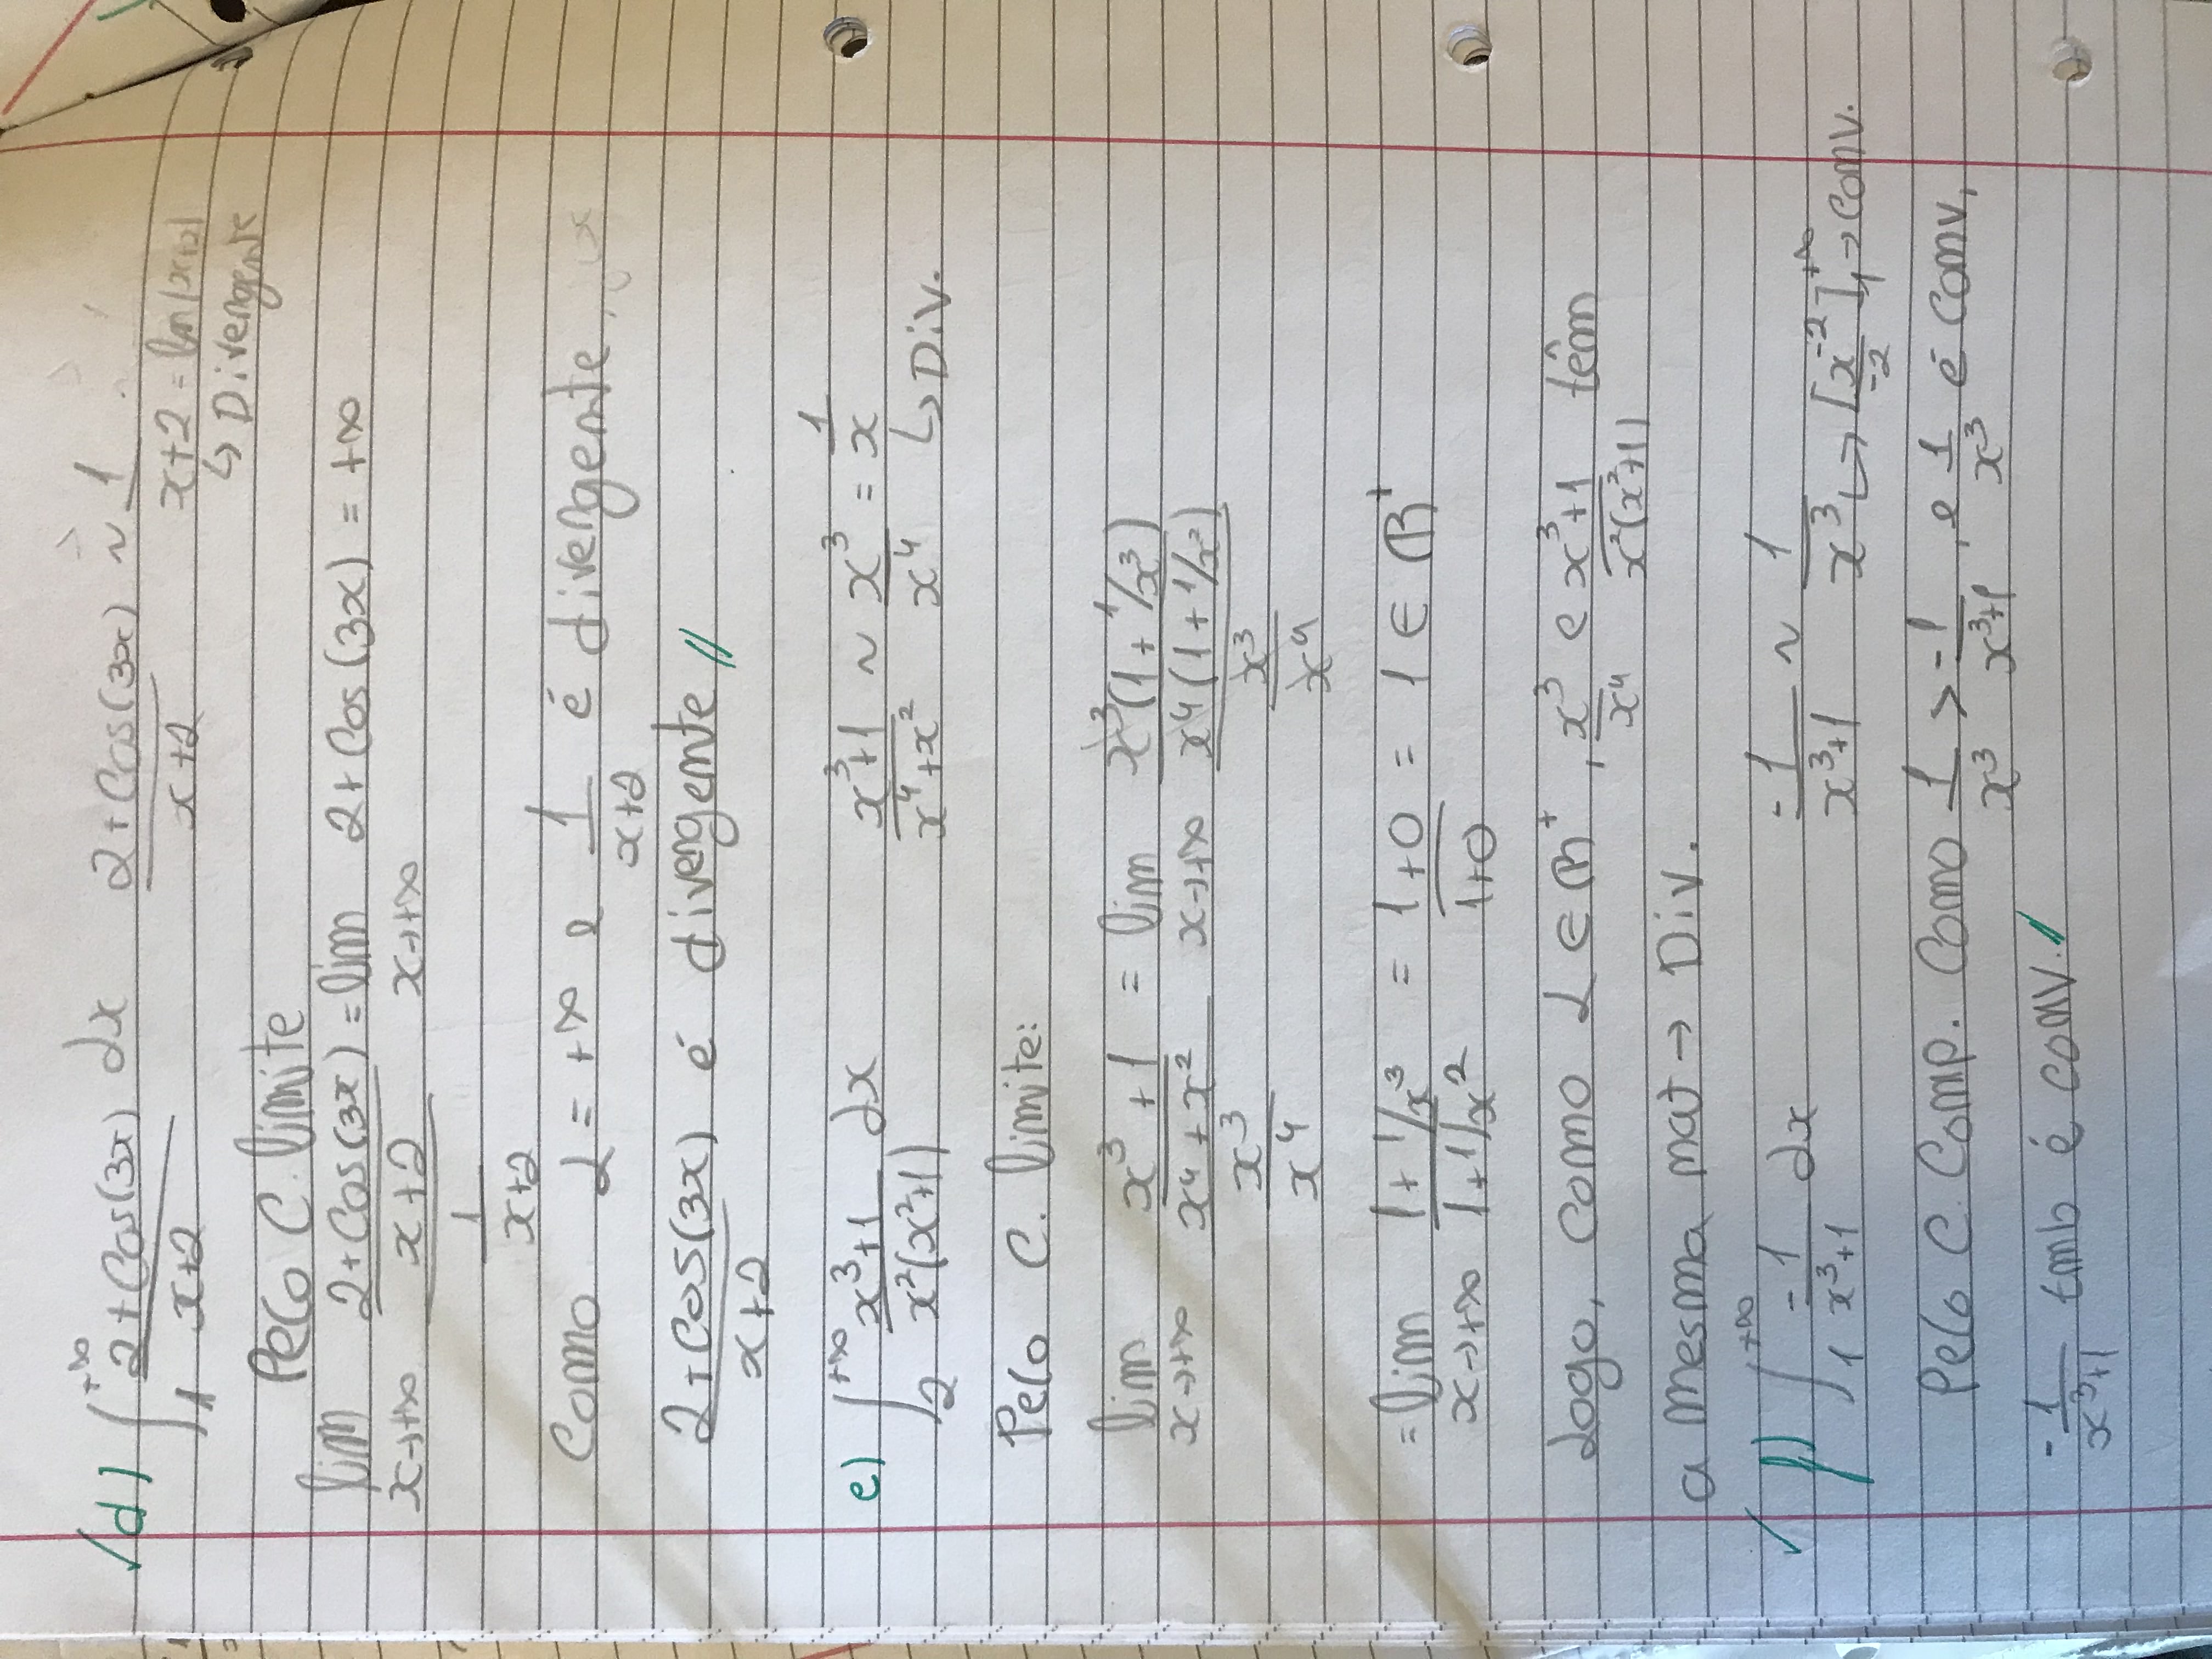 d) ∫₁^{+∞} (2+Cos(3x))/(x+2) dx   (2+Cos(3x))/(x+2) ~ 1/(x+2) = ln|x+2|
↳ Divergente
Pelo C. limite
lim x→+∞ ((2+Cos(3x))/(x+2))/(1/(x+2)) = lim x→+∞ 2+Cos(3x) = +∞
Como L = +∞ e 1/(x+2) é divergente,
(2+Cos(3x))/(x+2) é divergente //
e) ∫₂^{+∞} (x³+1)/(x²(x²+1)) dx   (x³+1)/(x⁴+x²) ~ x³/x⁴ = 1/x
↳ Div.
Pelo C. limite:
lim x→+∞ ((x³+1)/(x⁴+x²))/(x³/x⁴) = lim x→+∞ (x³(1+1/x³)/(x⁴(1+1/x²)))/(x³/x⁴)
= lim x→+∞ (1+1/x³)/(1+1/x²) = (1+0)/(1+0) = 1 ∈ ℝ⁺
Logo, como L ∈ ℝ⁺, x³/x⁴ e (x³+1)/(x²(x²+1)) têm
a mesma nat → Div.
✓ f) ∫₁^{+∞} -1/(x³+1) dx   -1/(x³+1) ~ 1/x³ ↳ [x⁻²/-2]₁^{+∞} → conv.
Pelo C. Comp. Como 1/x³ > -1/(x³+1), e 1/x³ é conv,
-1/(x³+1) tmb é conv. //